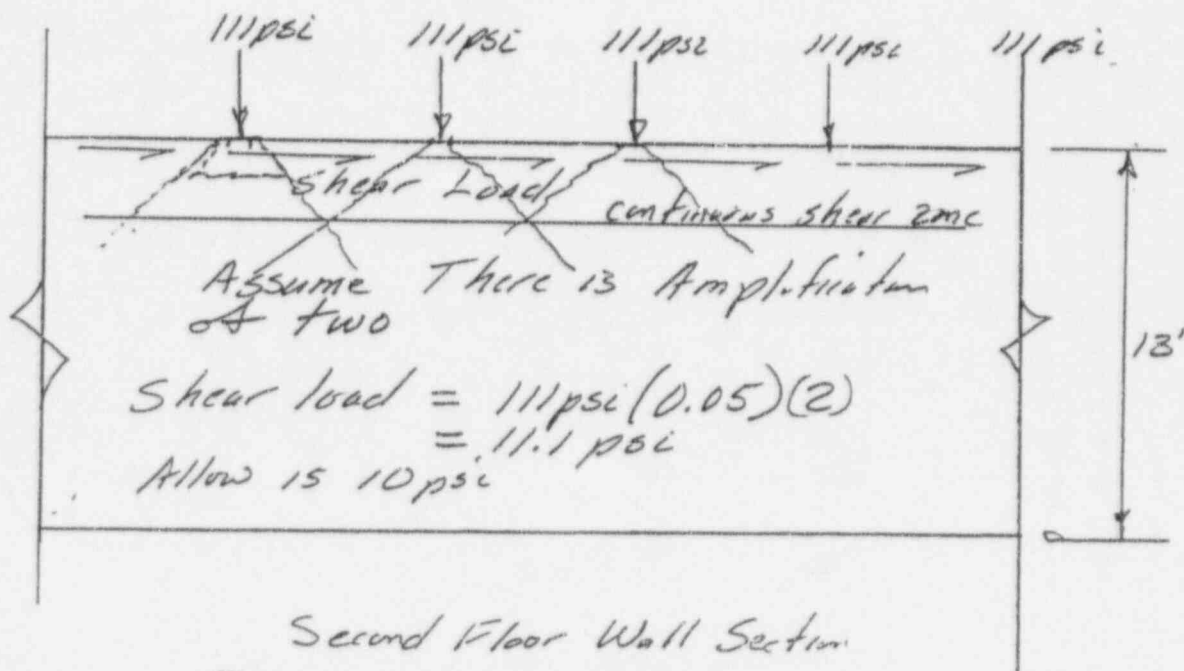 111psi 111psi 111psi 111psi 111psi
Shear Load
continuous shear zone
Assume There is Amplification
of two
13'
Shear load = 111psi(0.05)(2)
= 11.1 psi
Allow is 10psi
Second Floor Wall Section